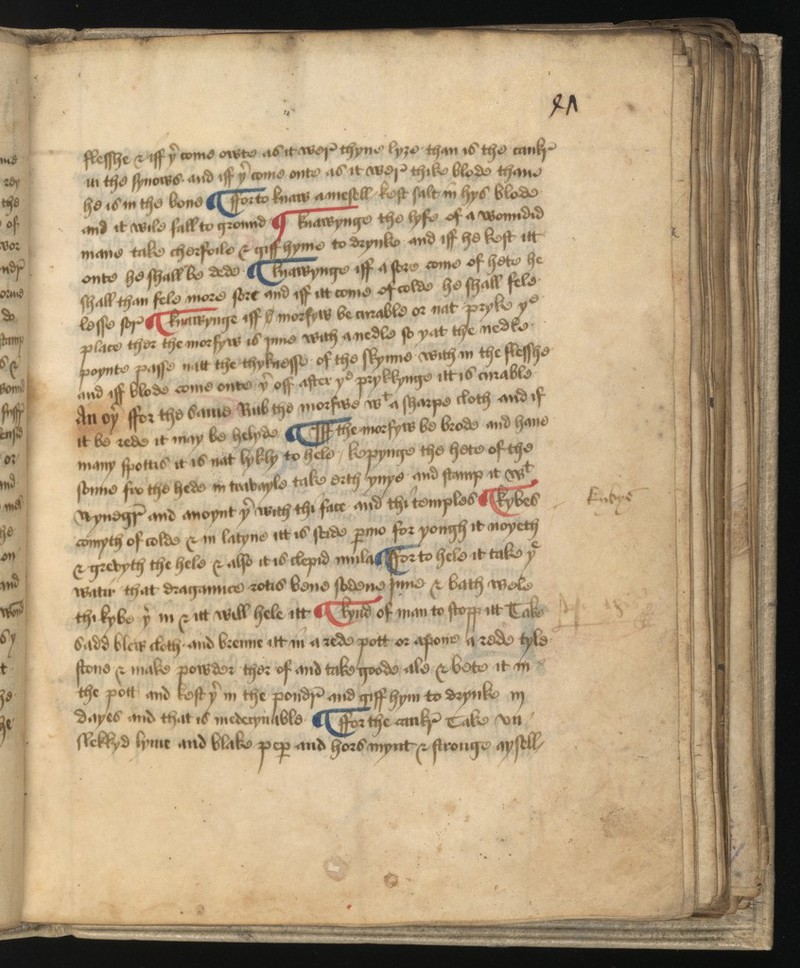 flessħe & iff yͬ come owte as it werͬ thyne lyze than is the cankͬ
in the synows and iff yͬ come onte as it werͬ thike blode thane
he is in the bone ¶ffor to knaw a mesell kest salt in hys blode
and it wile fall to ground ¶ knawynge the lyfe of a wonndid
mane take cherfoile & giff hyme to drynke and iff he kest itt
onte he shall be dede ¶knawynge iff a sore come of hete he
shall than fele more sore and iff itt come of colde he shall fele
lesse sorͬ ¶knawynge iff yͤ morfyw be curable or nat pryke yͤ
place ther the morfyw is june with a nedle so yat the nedle
poynte passe natt the thyknesse of the skynne with in the flesshe
and iff blode come onte yͬ off after yͤ prykkynge itt is curable
An oyͬ ffor the same Rub the morfwe wͭ a sharpe cloth and if
it be rede it may be helyde ¶Iff the morfyw be brode and hane
many spottis it is nat lykly to hele / kepynge the hete of the
sonne fro the hede in travayle take erth ynye and stamp it wͭ
wynegrͬ and anoynt yͬ with thi face and thi temples ¶kybes
comyth of colde & in latyne itt is seide pͬmo for yongh it noyeth
& grevyth the hele & also it is clepid mula ¶ffor to hele it take yͤ
watir that dragannce rotis bene sodene jnne & bath wele
thi kybe yͬ in & itt will hele itt ¶kynd of man to stopp itt Take
Sadd blew cloth and brenne itt in a rede pott or apone a rede tyle
stone & make powder ther of and take goode ale & bete it in
the pott and kest yͬ in the pondrͬ and giff hym to drynke iij
dayes and that is medecynable ¶ffor the cankͬ Take vn
slekkyd lyme and blake pepͬ and hors mynt & stronge aysell